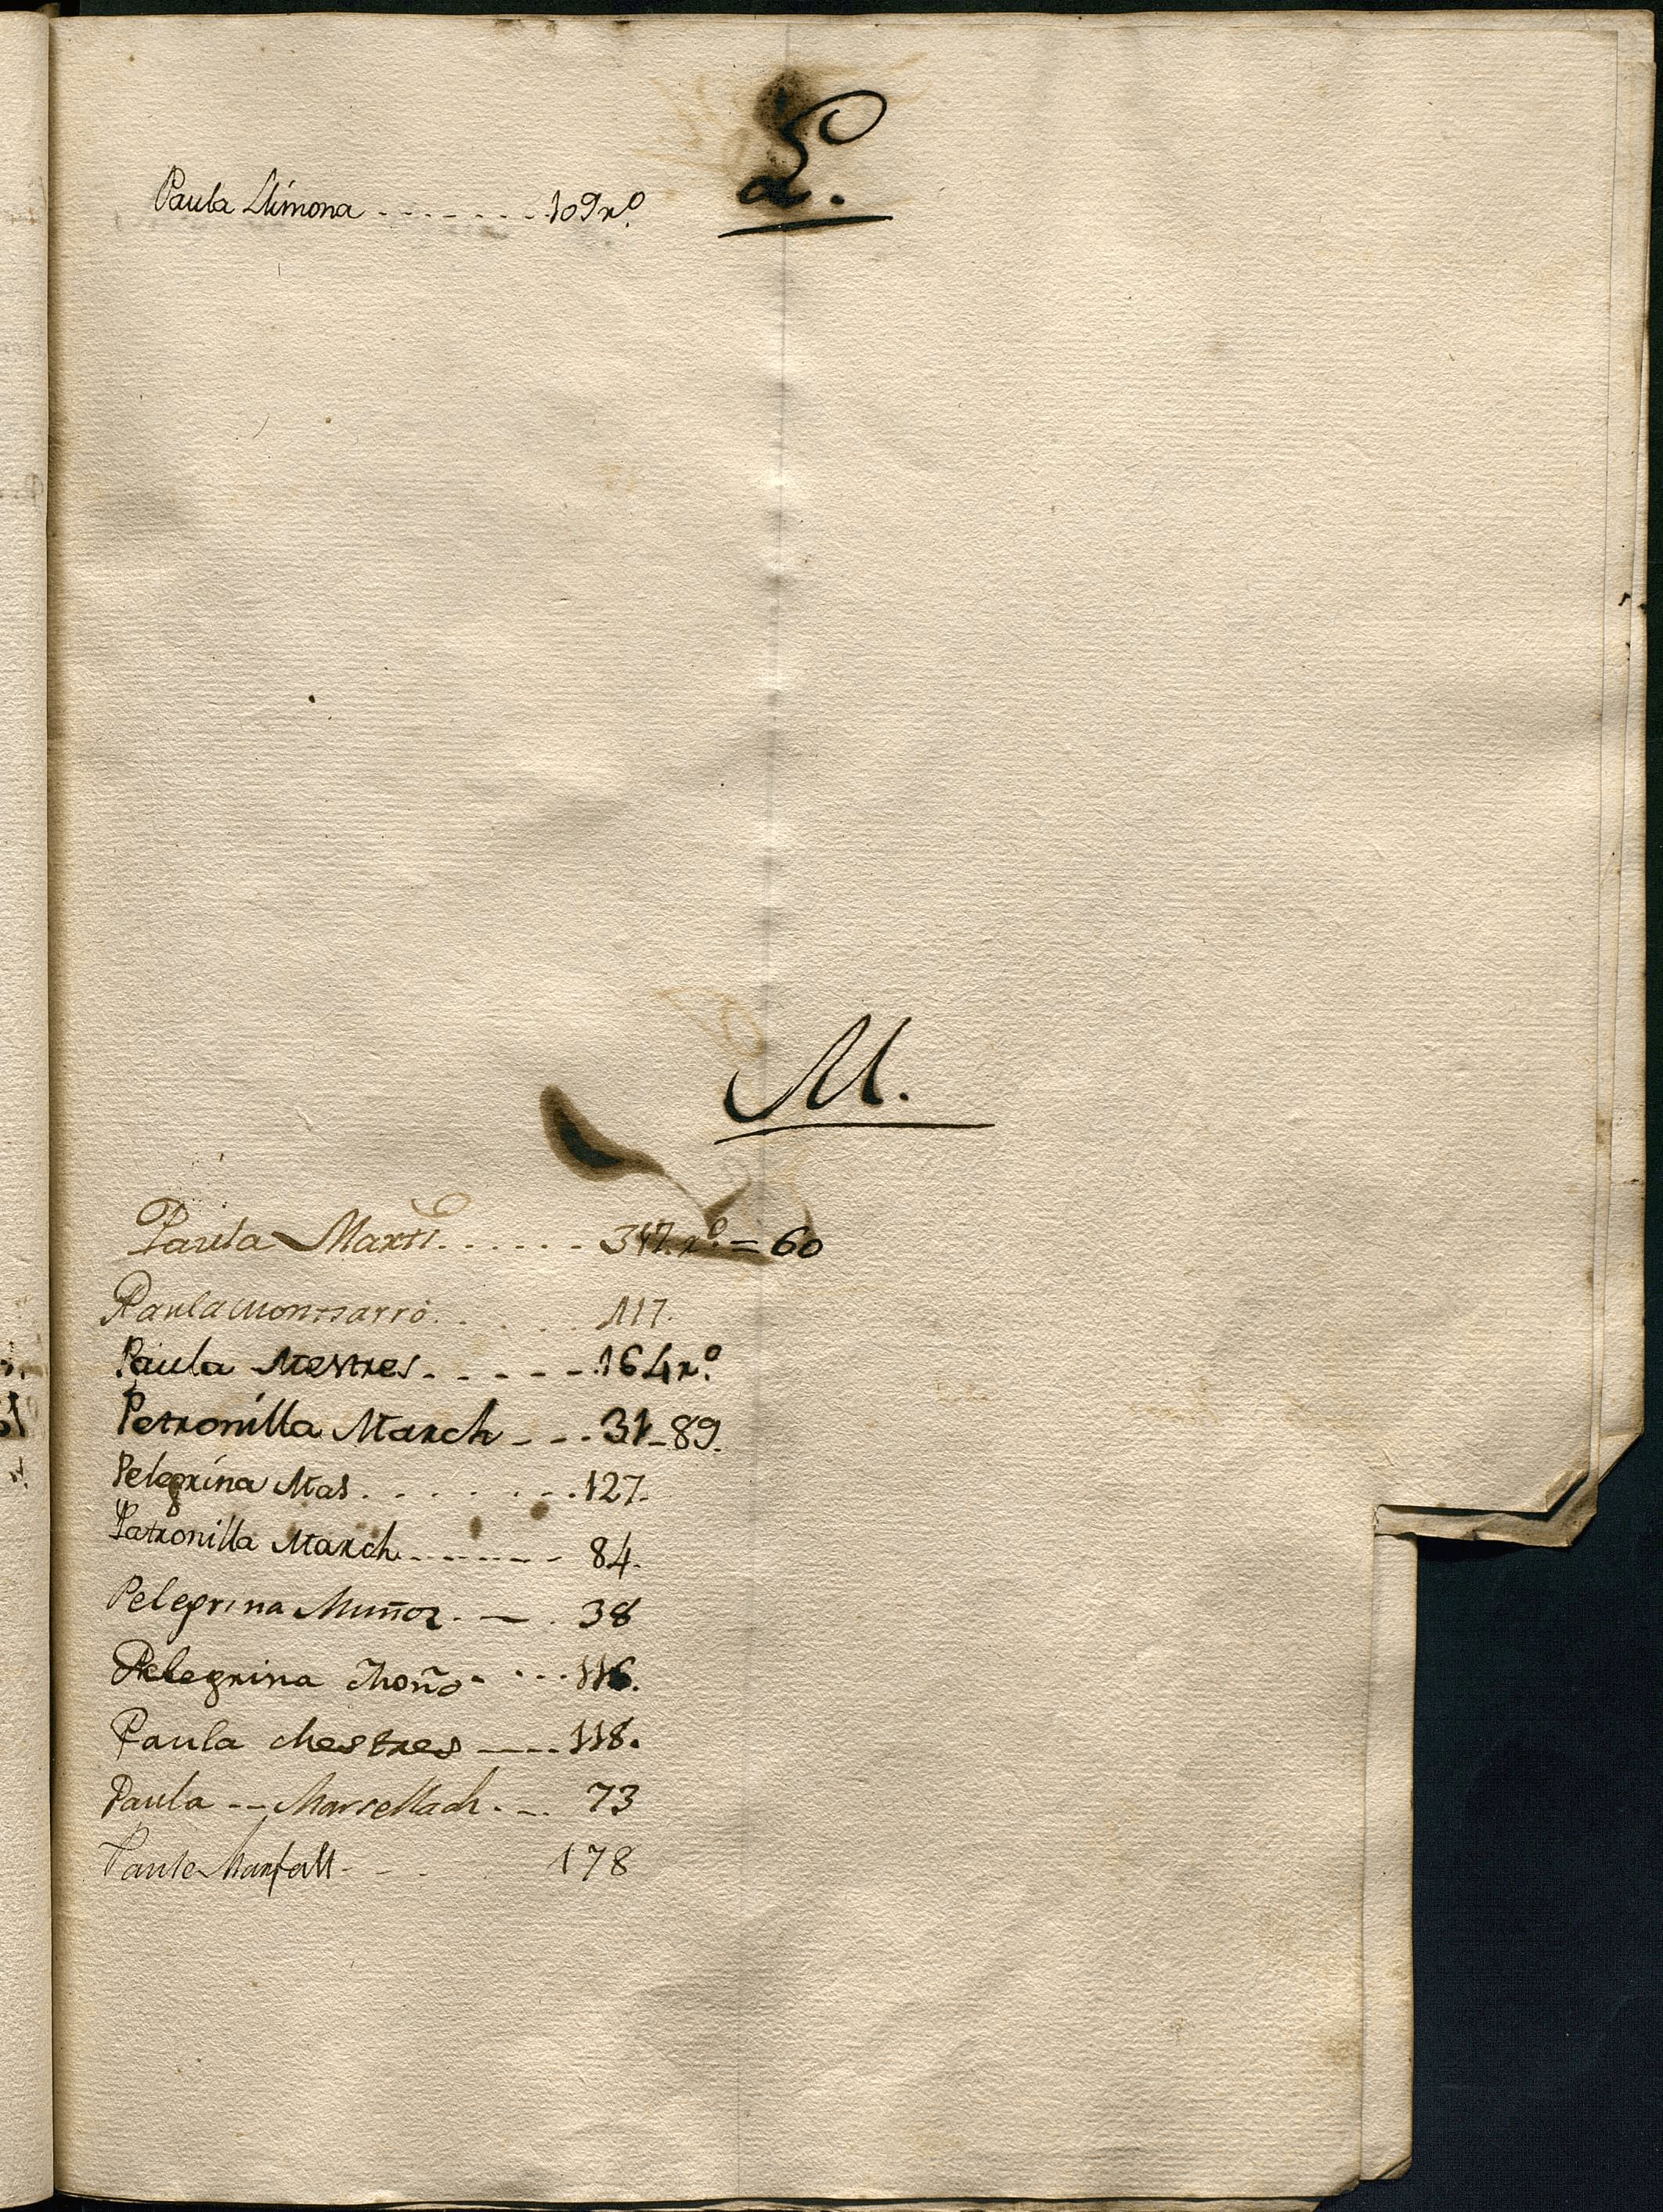 L.
Paula Llimona - - - - - - - 109 rº.
M.
Paula Marti. . . . . . 347. rº. = 60
Paula Montsarro. . . . . 117.
Paula Mestres. - - - - 164 rº.
Petronilla March - - - 31-89.
Pelegrina Mas. . . . . . . 127.
Patronilla March. - - - - - 84.
Pelegrina Muñoz. — . 38
Pelegrina Moño - . . . 116.
Paula Mestres — - - 118.
Paula -- Marsellach. - . 73
Paula - - . 178